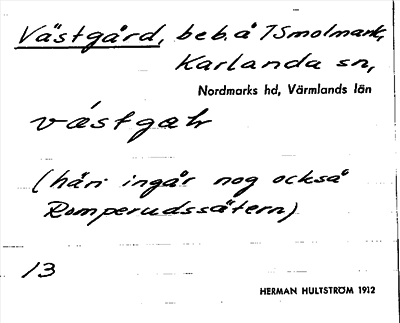 Västgård, beb. å TSmolmark,
Karlanda sn,
Nordmarks hd, Värmlands län
västgaḷr
(häri ingår nog också
Romperudssätern)
13
HERMAN HULTSTRÖM 1912